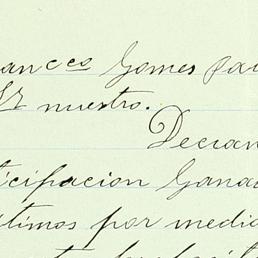 ances Gomes par
Sr nuestro.
Decian
icipacion Gana
timos por media